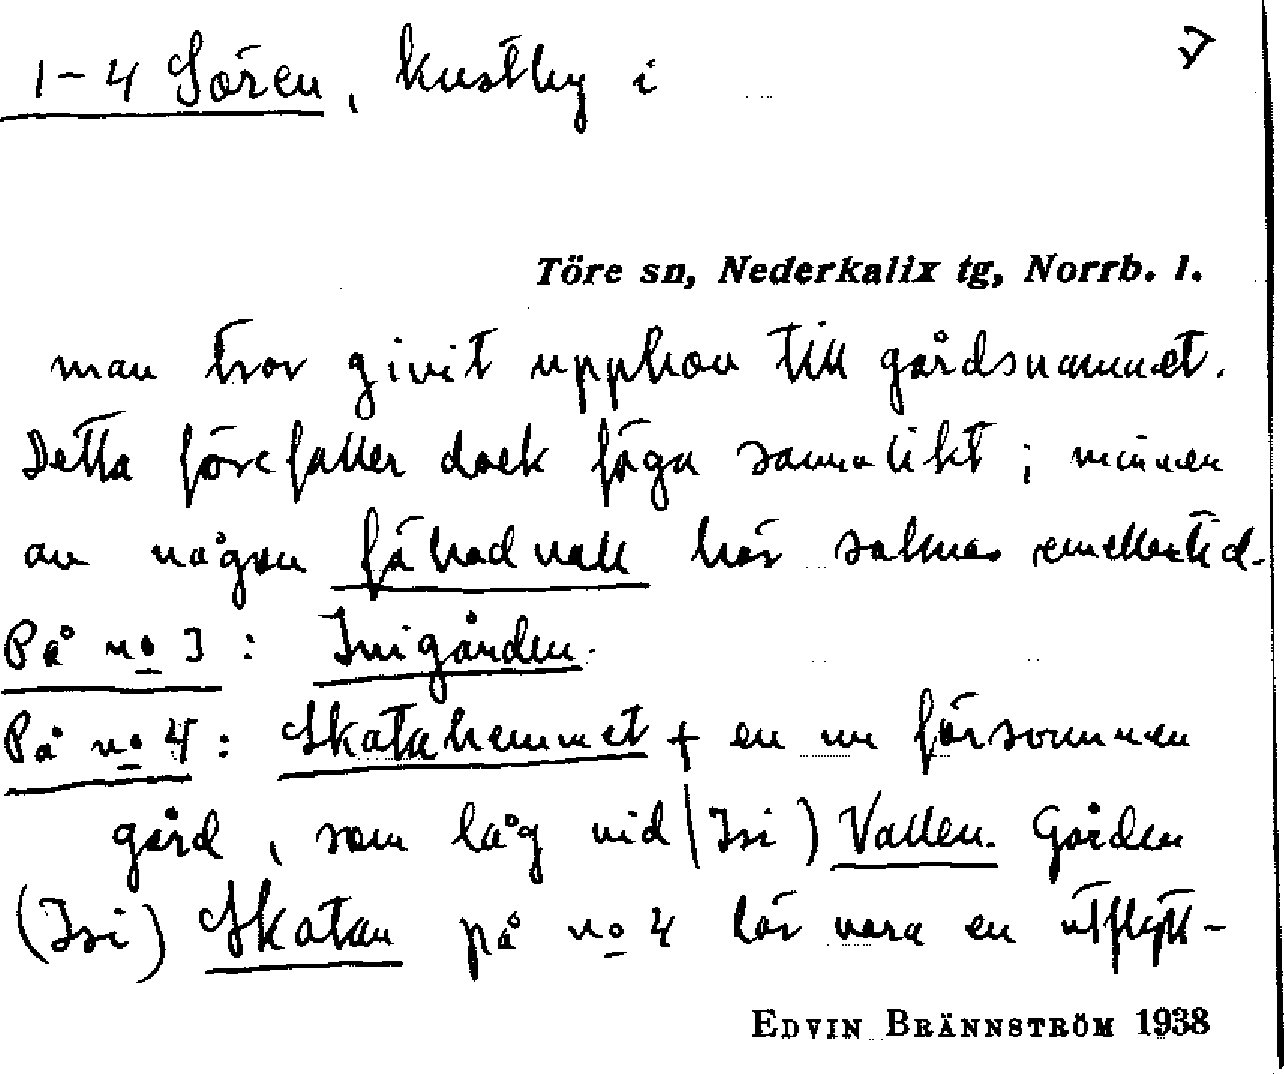 1-4 Sören, kustby i
Töre sn, Nederkalix tg, Norrb. l.
man tror givit upphov till gårdsnamnet.
Detta förefaller dock föga sannolikt; minnen
av någon fäbodvall här saknas emellertid.
På no 3: Inigården.
På no 4: Skatahemmet + en nu försvunnen
gård, som låg vid (Isi) Vallen. Gården
(Isi) Skatan på no 4 lär vara en utflytt-
EDVIN BRÄNNSTRÖM 1938